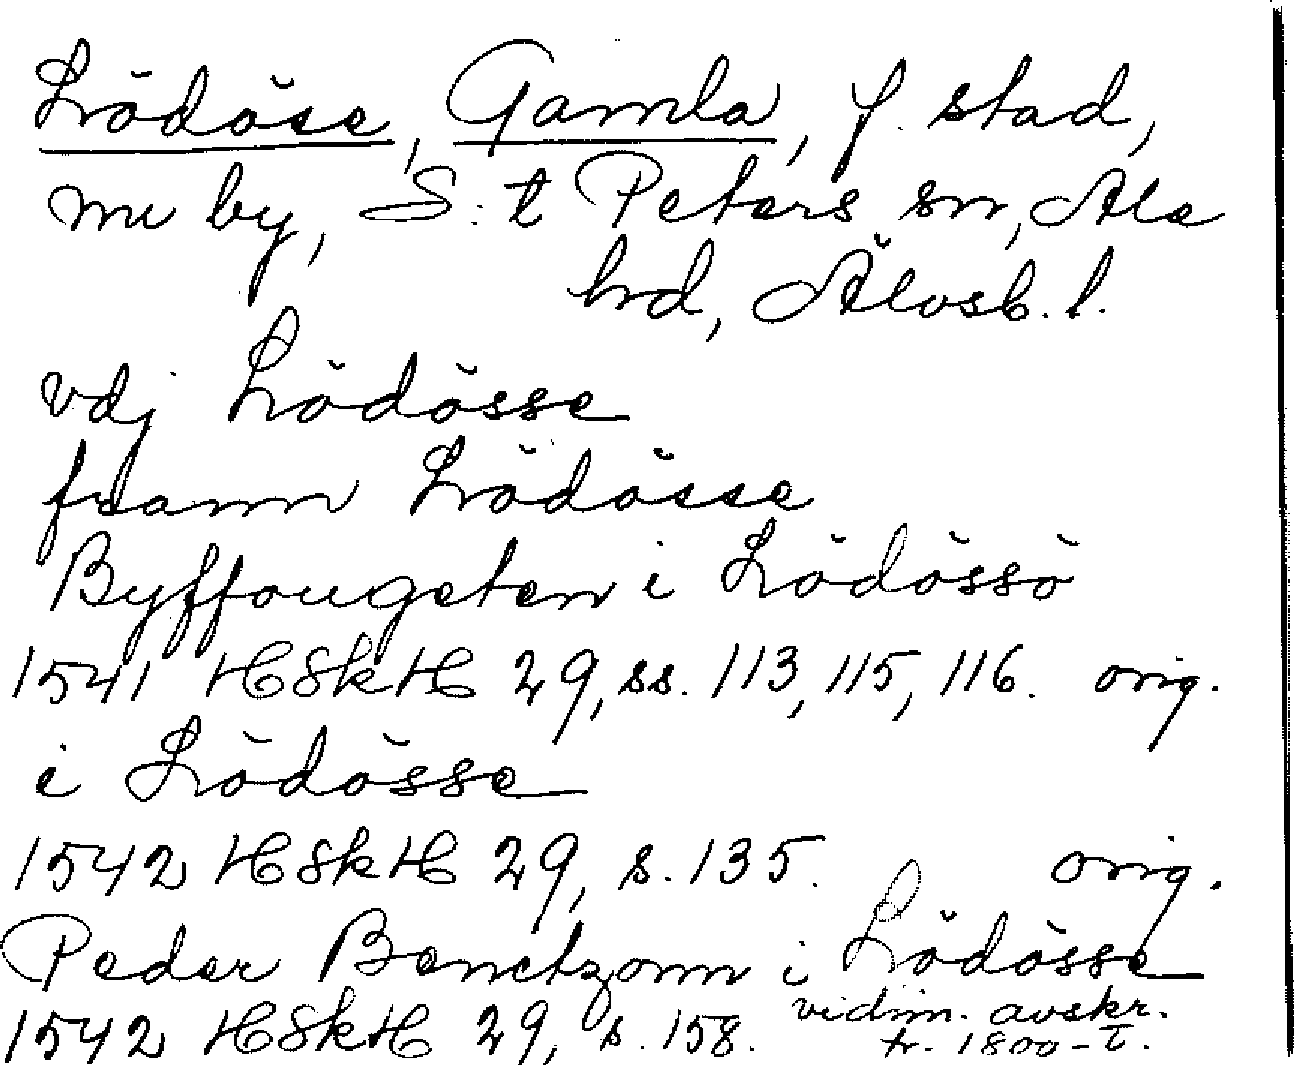 Lödöse, Gamla, f. stad,
nu by, S:t Peters sn, Ale
hd, Älvsb. l.
vdj Lödösse
frann Lödösse
Byffougeten i Lödössö
1541 HSkH 29, ss. 113, 115, 116. orig.
i Lödösse
1542 HSkH 29, s. 135. orig.
Peder Benctzonn i Lödösse
1542 HSkH 29, s. 158. vidim. avskr.
fr. 1800-t.